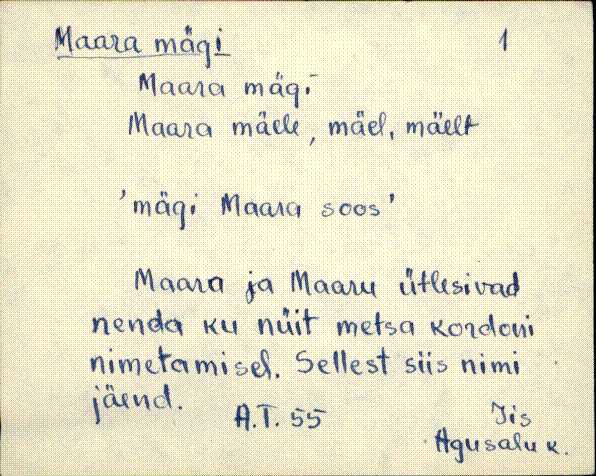 Maara mägi 1
Maara mägi
Maara mäele, mäel, mäelt
'mägi Maara soos'
Maara ja Maaru ütlesivad
nenda ku nüit metsa kordoni
nimetamisel. Sellest siis nimi
jäend.
A.T. 55 Iis
Agusalu k.